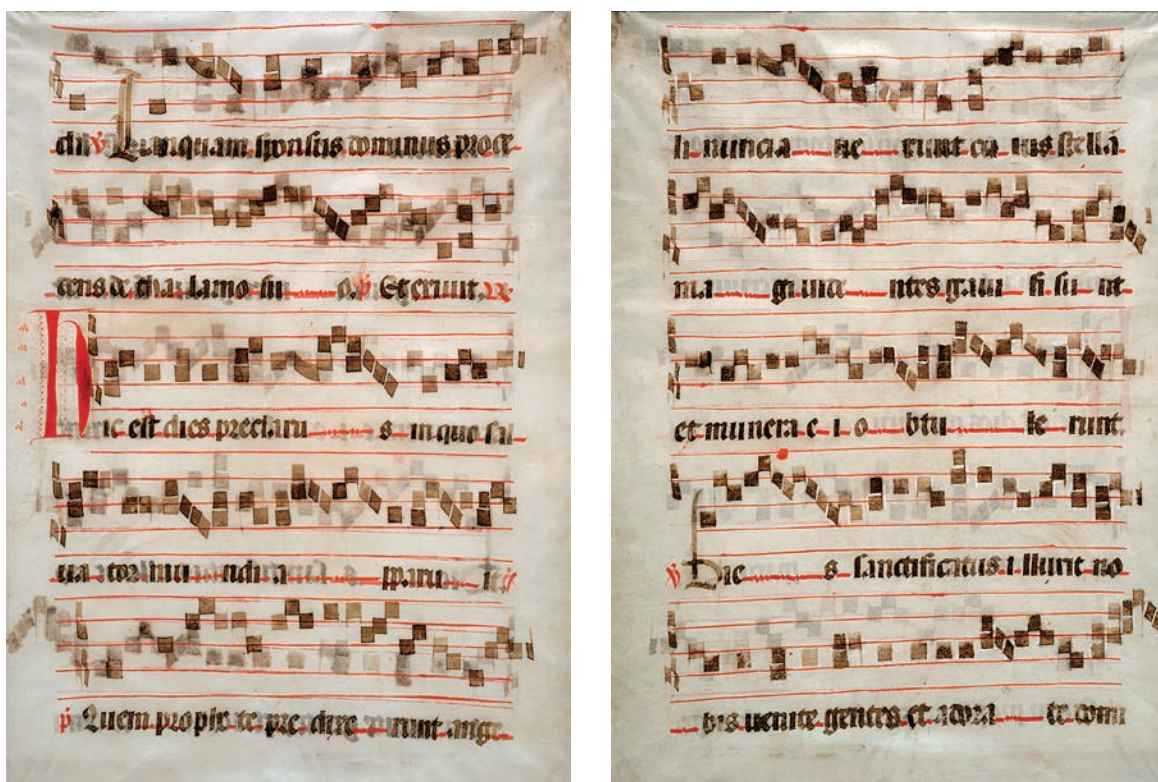 chi ℣ Tanquam sponsus dominus proce
cens de tha lamo su o. p̄ Et eruut. ℟
Hic est dies preclaru s in que sal
ua tor mu ndi a pparu it
p̄ Quem prophe te pre dixe runt ange
li nuncia ve runt cu ius stellā
ma gi uice ntes gaui si su nt
et munera e i o btu le runt.
℣ Die s sanctificatus i lluxit no
bis uenite gentes et adora te domi